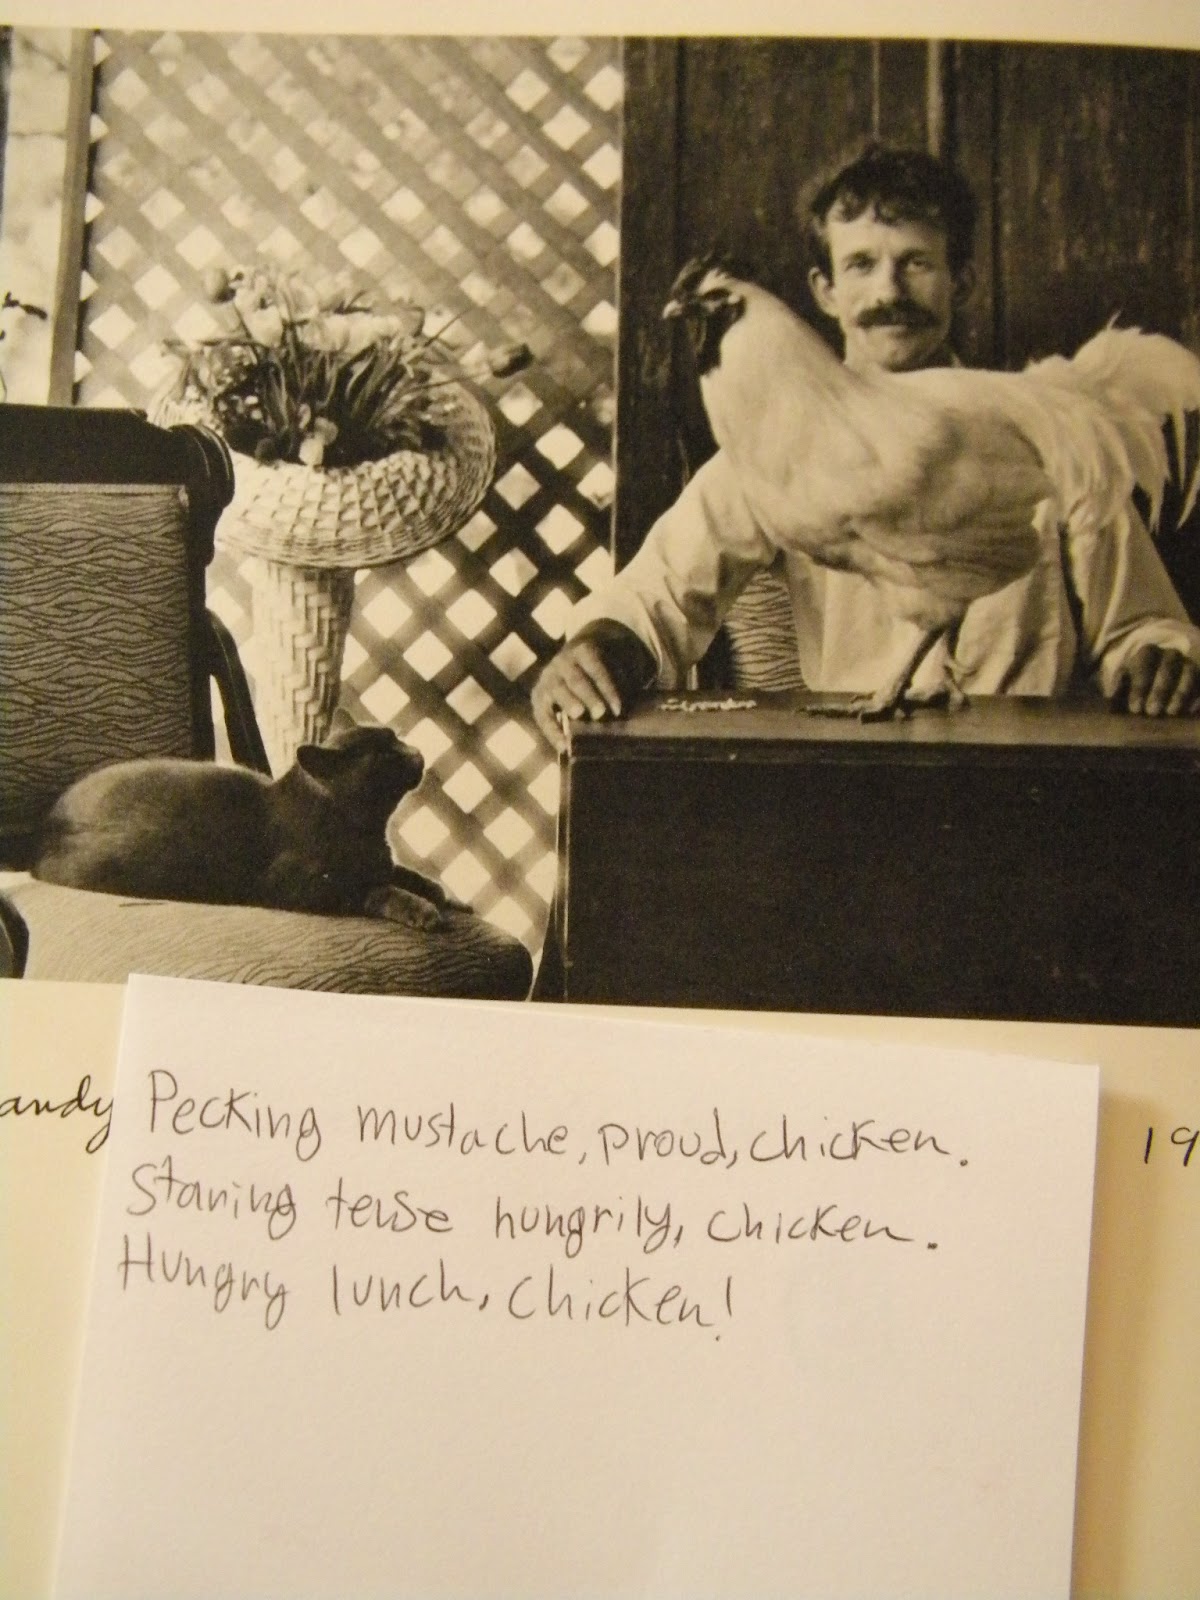 andy
Pecking mustache, proud, chicken.
Staring tense hungrily, chicken.
Hungry lunch, chicken!
19